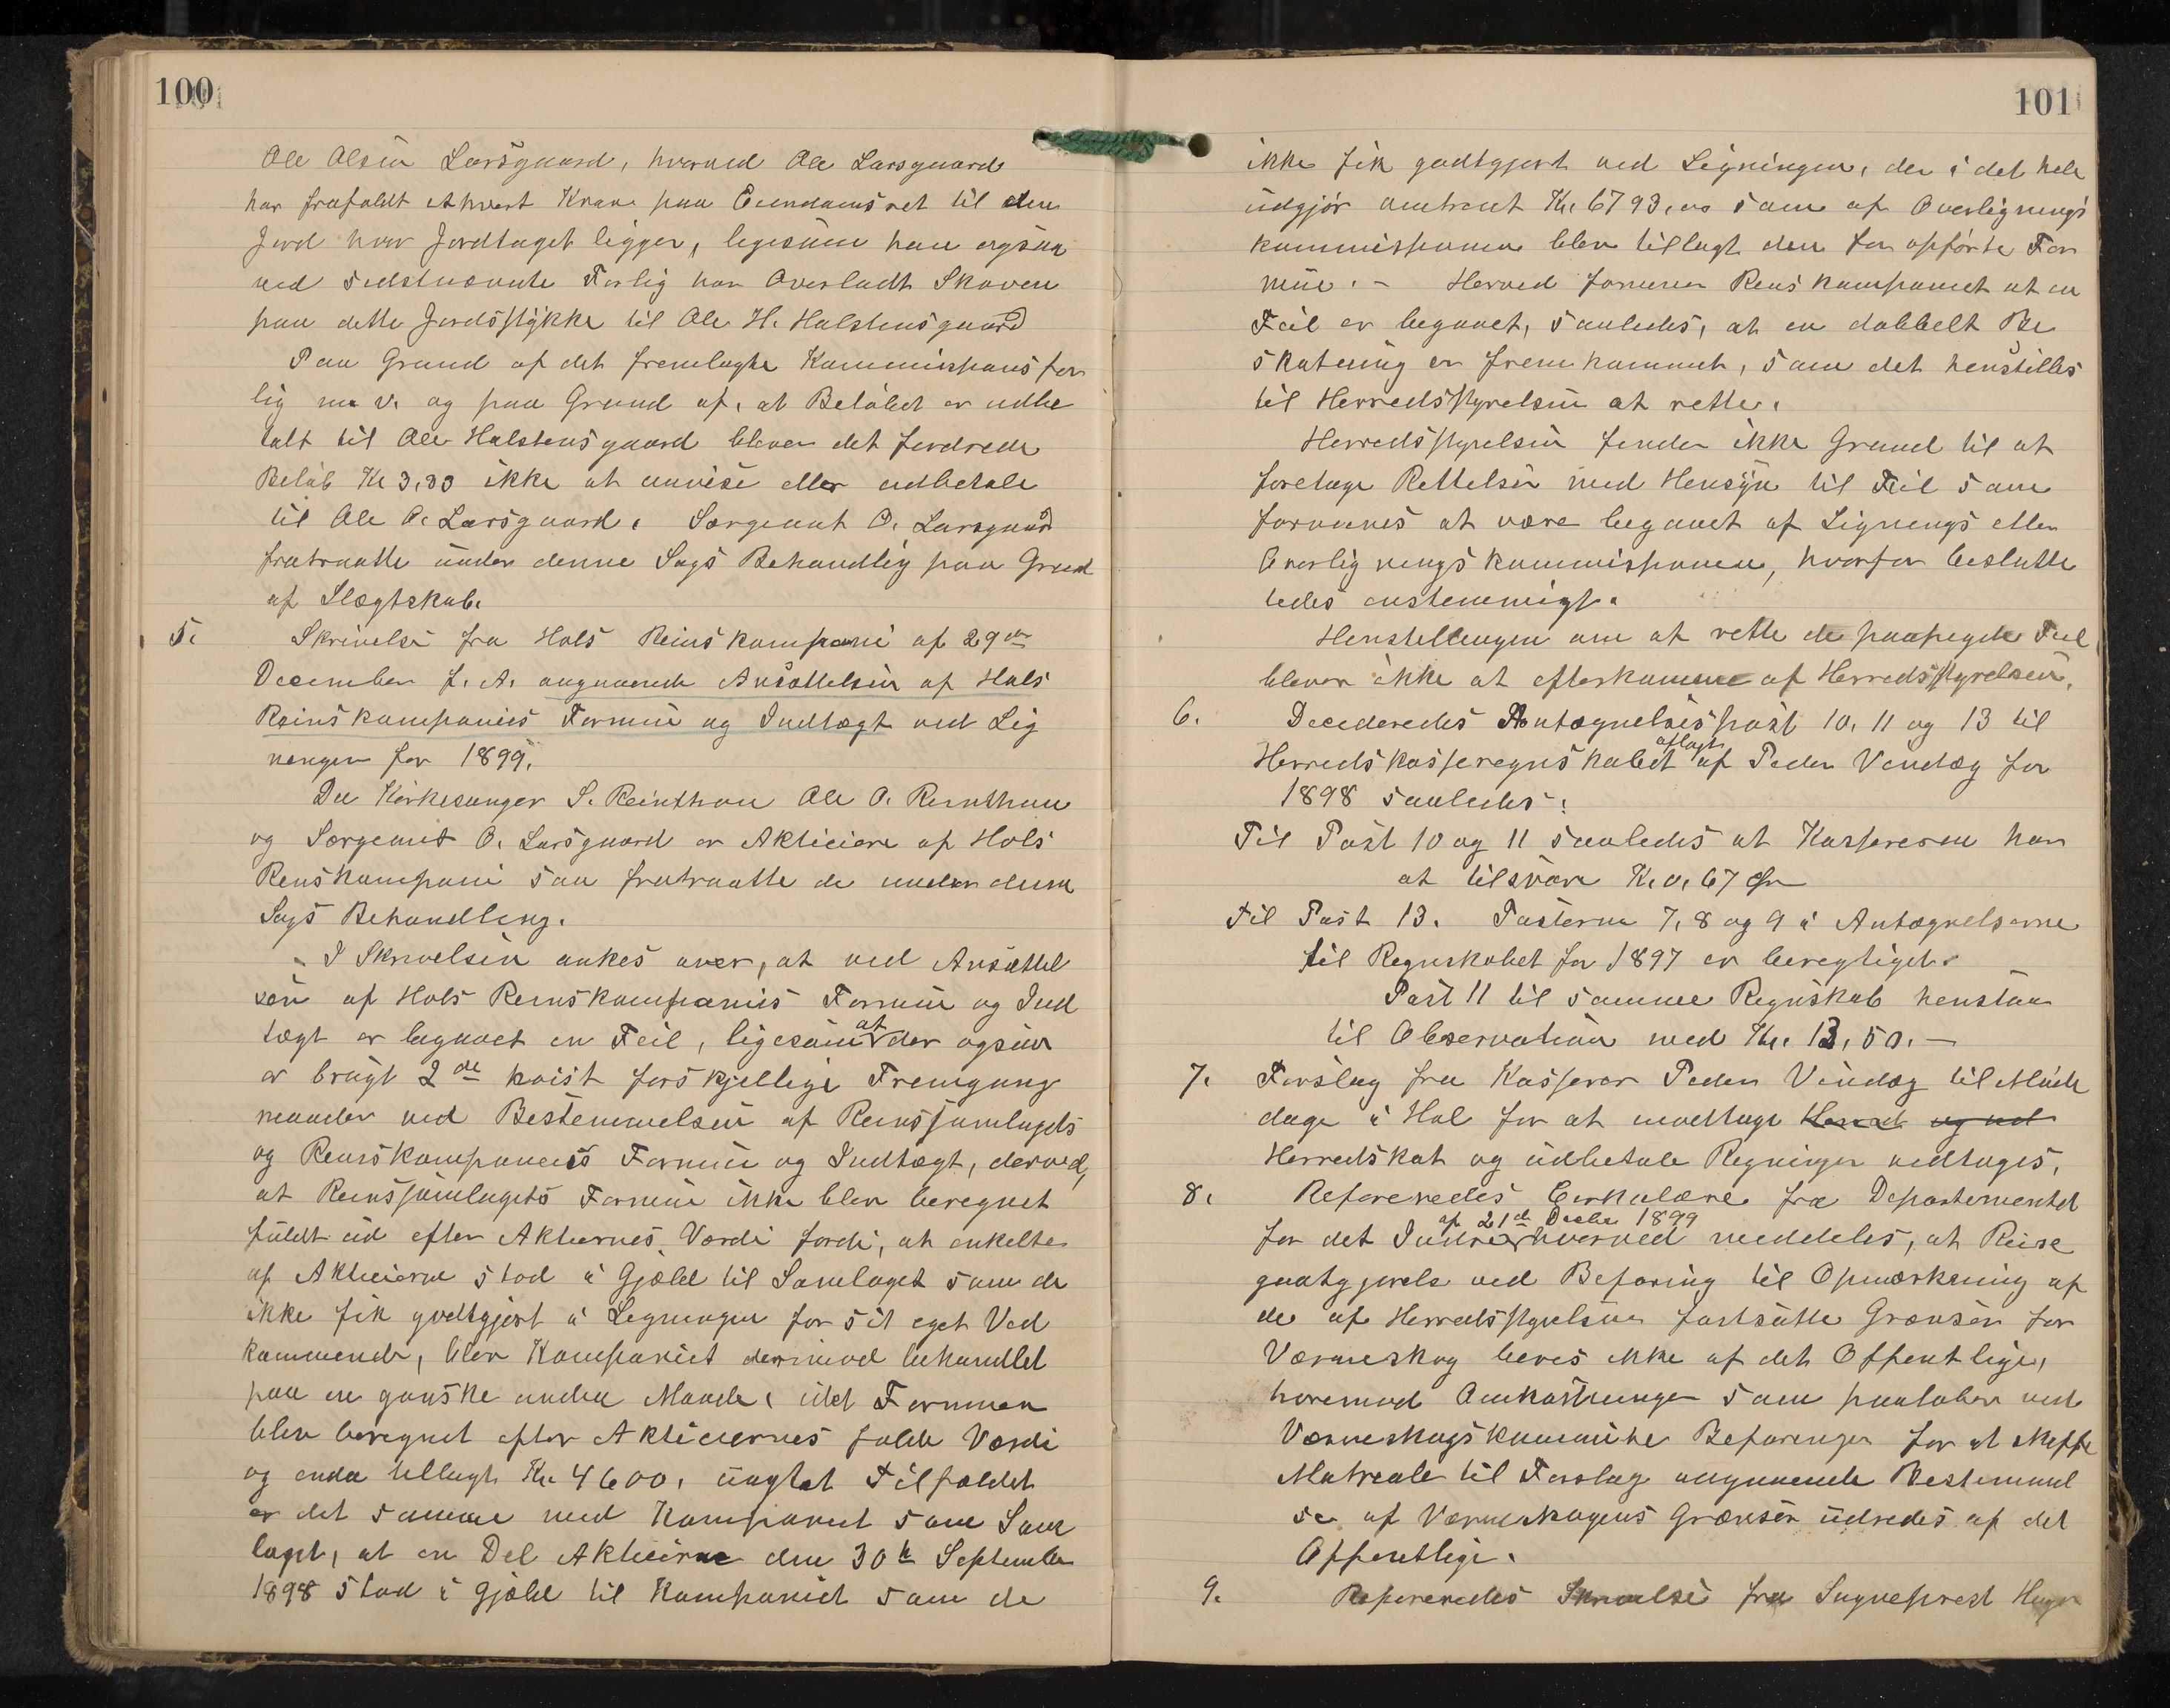 100
Ole Olsen Larsgaard, hvorved Ole Larsgaard
har frafaldt ethvert Krav paa Eiendomsret til den
Jord hvor Jordtaget ligger, ligesom han ogsaa
ved sidstnævnte Forlig har Overladt Skoven
paa dette Jordstykke til Ole H. Halstensgaard
Paa Grund af det fremlagte Kommissionsfor
lig m. v. og paa Grund af, at Beløbet er udbe
talt til Ole Halstensgaard bliver det fordrede
Beløb Kr 3,33 ikke at anvise eller udbetale
til Ole O. Larsgaard. Sergeant O. Larsgaard
fratraatte under denne Sags Behandlig paa Grund
af Slægtskab.
5. Skrivelse fra Hols Reinskompani af 29de
December f. A. angaaende Ansættelsen af Hols
Reinskompanies Formue og Indtægt ved Lig
ningen for 1899.
Da Kirkesanger S. Reinthon Ole O. Reinthon
og Sergeant O. Larsgaard er Aktieiere af Hols
Renskompani saa fratraatte de under denne
Sags Behandling.
I Skrivelsen ankes over, at ved Ansættel
sen af Hols Renskompanies Formue og Ind
tægt er begaaet en Feil, ligesom at der ogsaa
er brugt 2de høist forskjellige Fremgangs
maader ved Bestemmelsen af Renssamlagets
og Renskompaniets Formue og Indtægt, derved,
at Renssamlagets Formue ikke blev beregnet
fuldt ud efter Aktiernes Værdi fordi, at enkelte
af Aktieierne stod i Gjæld til Samlaget som de
ikke fik godtgjort i Ligningen for sit eget Ved
kommende, blev Kompaniet derimod behandlet
paa en ganske anden Maade, idet Formuen
blev beregnet efter Aktieiernes fulde Værdi
og enda tillagt Kr 4600, uagtet Tilfældet
er det samme med Kompaniet som Sam
laget, at en Del Aktieierne den 30te September
1898 stod i Gjæld til Kompaniet som de
101
ikke fik godtgjort ved Ligningen, der i det hele
udgjør omtrent Kr. 6793,00 som af Overlignings
kommissionen blev tillagt den for opførte For
mue. – Herved formener Renskompaniet at en
Feil er begaaet, saaledes, at en dobbelt Be
skatning er fremkommet, som det henstilles
til Herredsstyrelsen at rette.
Herredsstyrelsen finder ikke Grund til at
foretage Rettelser med Hensyn til Feil som
formenes at være begaaet af Lignings eller
Overligningskommissionen, hvorfor beslutte
tedes enstemmigt.
Henstillingen om at rette de paapegede Feil
bliver ikke at efterkomme af Herredsstyrelsen.
6. Decideredes Antegnelsespost 10, 11 og 13 til
Herredskasseregnskabet aflagt af Peder Vindæg for
1898 saaledes:
Til Post 10 og 11 saaledes at Kassereren har
at tilsvare Kr. 0,67 Øre
Til Post 13. Posterne 7, 8 og 9 i Antegnelserne
til Regnskabet for 1897 er beregtiget.
Post 11 til samme Regnskab henstaar
til Observation med Kr. 13,50. –
7. Forslag fra Kasserer Peder Vindæg til Møde
dage i Hol for at modtage Herred og ud
Herredskat og udbetale Regninger vedtages.
8. Refereredes Cirkulære fra Departementet
for det Indre af 21de Decbr 1899 hvorved meddeles, at Reise
godtgjørels ved Befaring til Opmærkning af
de af Herredsstyrelsen fastsatte Grænser for
Værneskog beres ikke af det Offentlige,
hvorimod Omkostninger som paaløber ved
Værneskogskommite Befaringer for at skaffe
Matreale til Forslag angaaende Bestemmel
se af Værneskogens Grænser udredes af det
Offentlige.
9. Refereredes Skrivelse fra Sogneprest